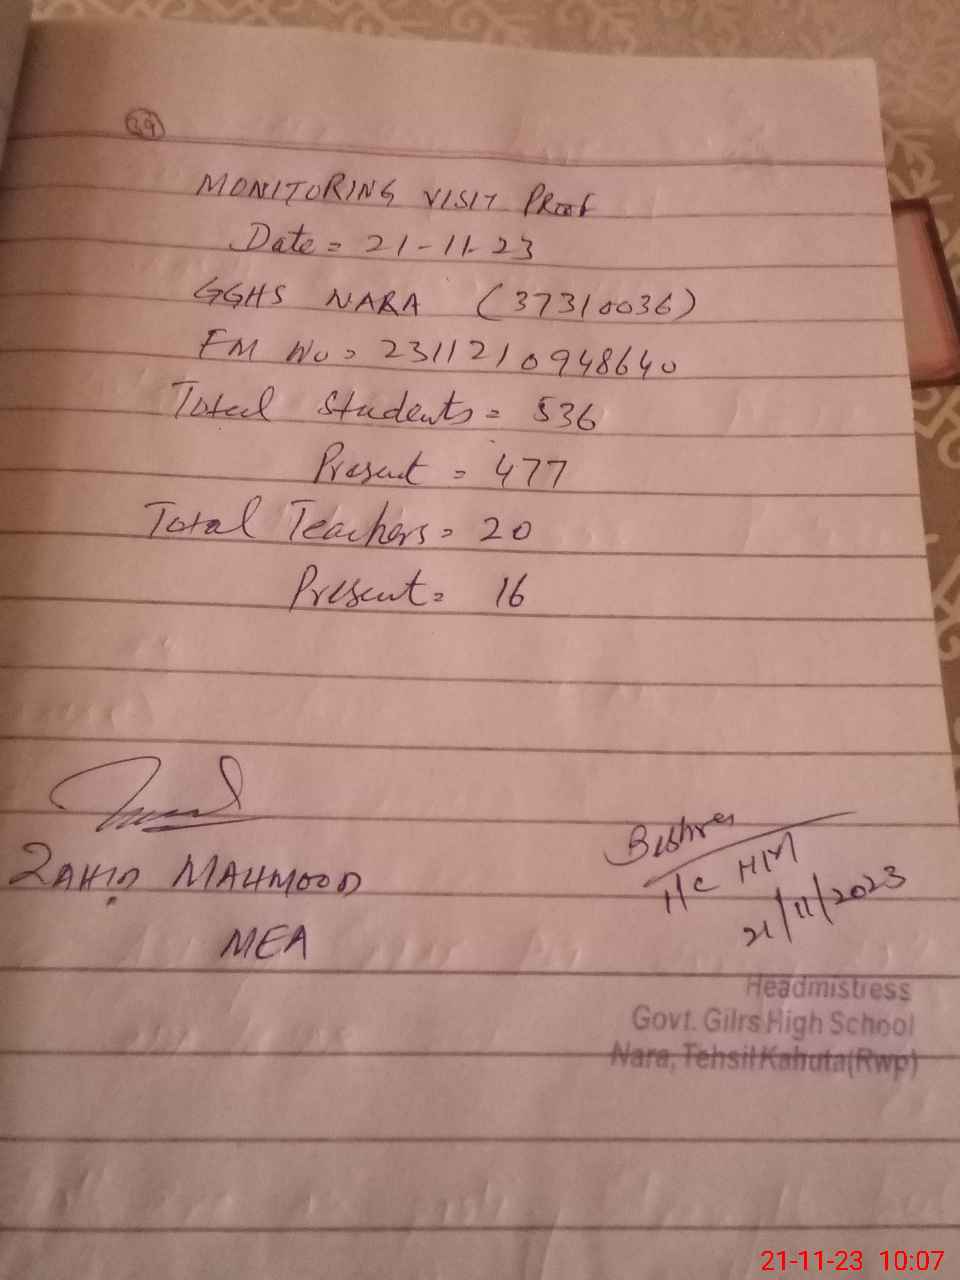 29
MONITORING VISIT Proof
Date = 21-11-23
GGHS NARA (37310036)
FM No = 2311210948640
Total Students = 536
Present = 477
Total Teachers = 20
Present = 16
ZAHID MAHMOOD
MEA
Bushra
I/C H/M
21/11/2023
Headmistress
Govt. Gilrs High School
Nara, Tehsil Kahuta(Rwp)
21-11-23 10:07